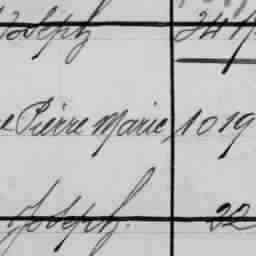 Joseph 241
e Pierre Marie, 1019
Joseph. 22